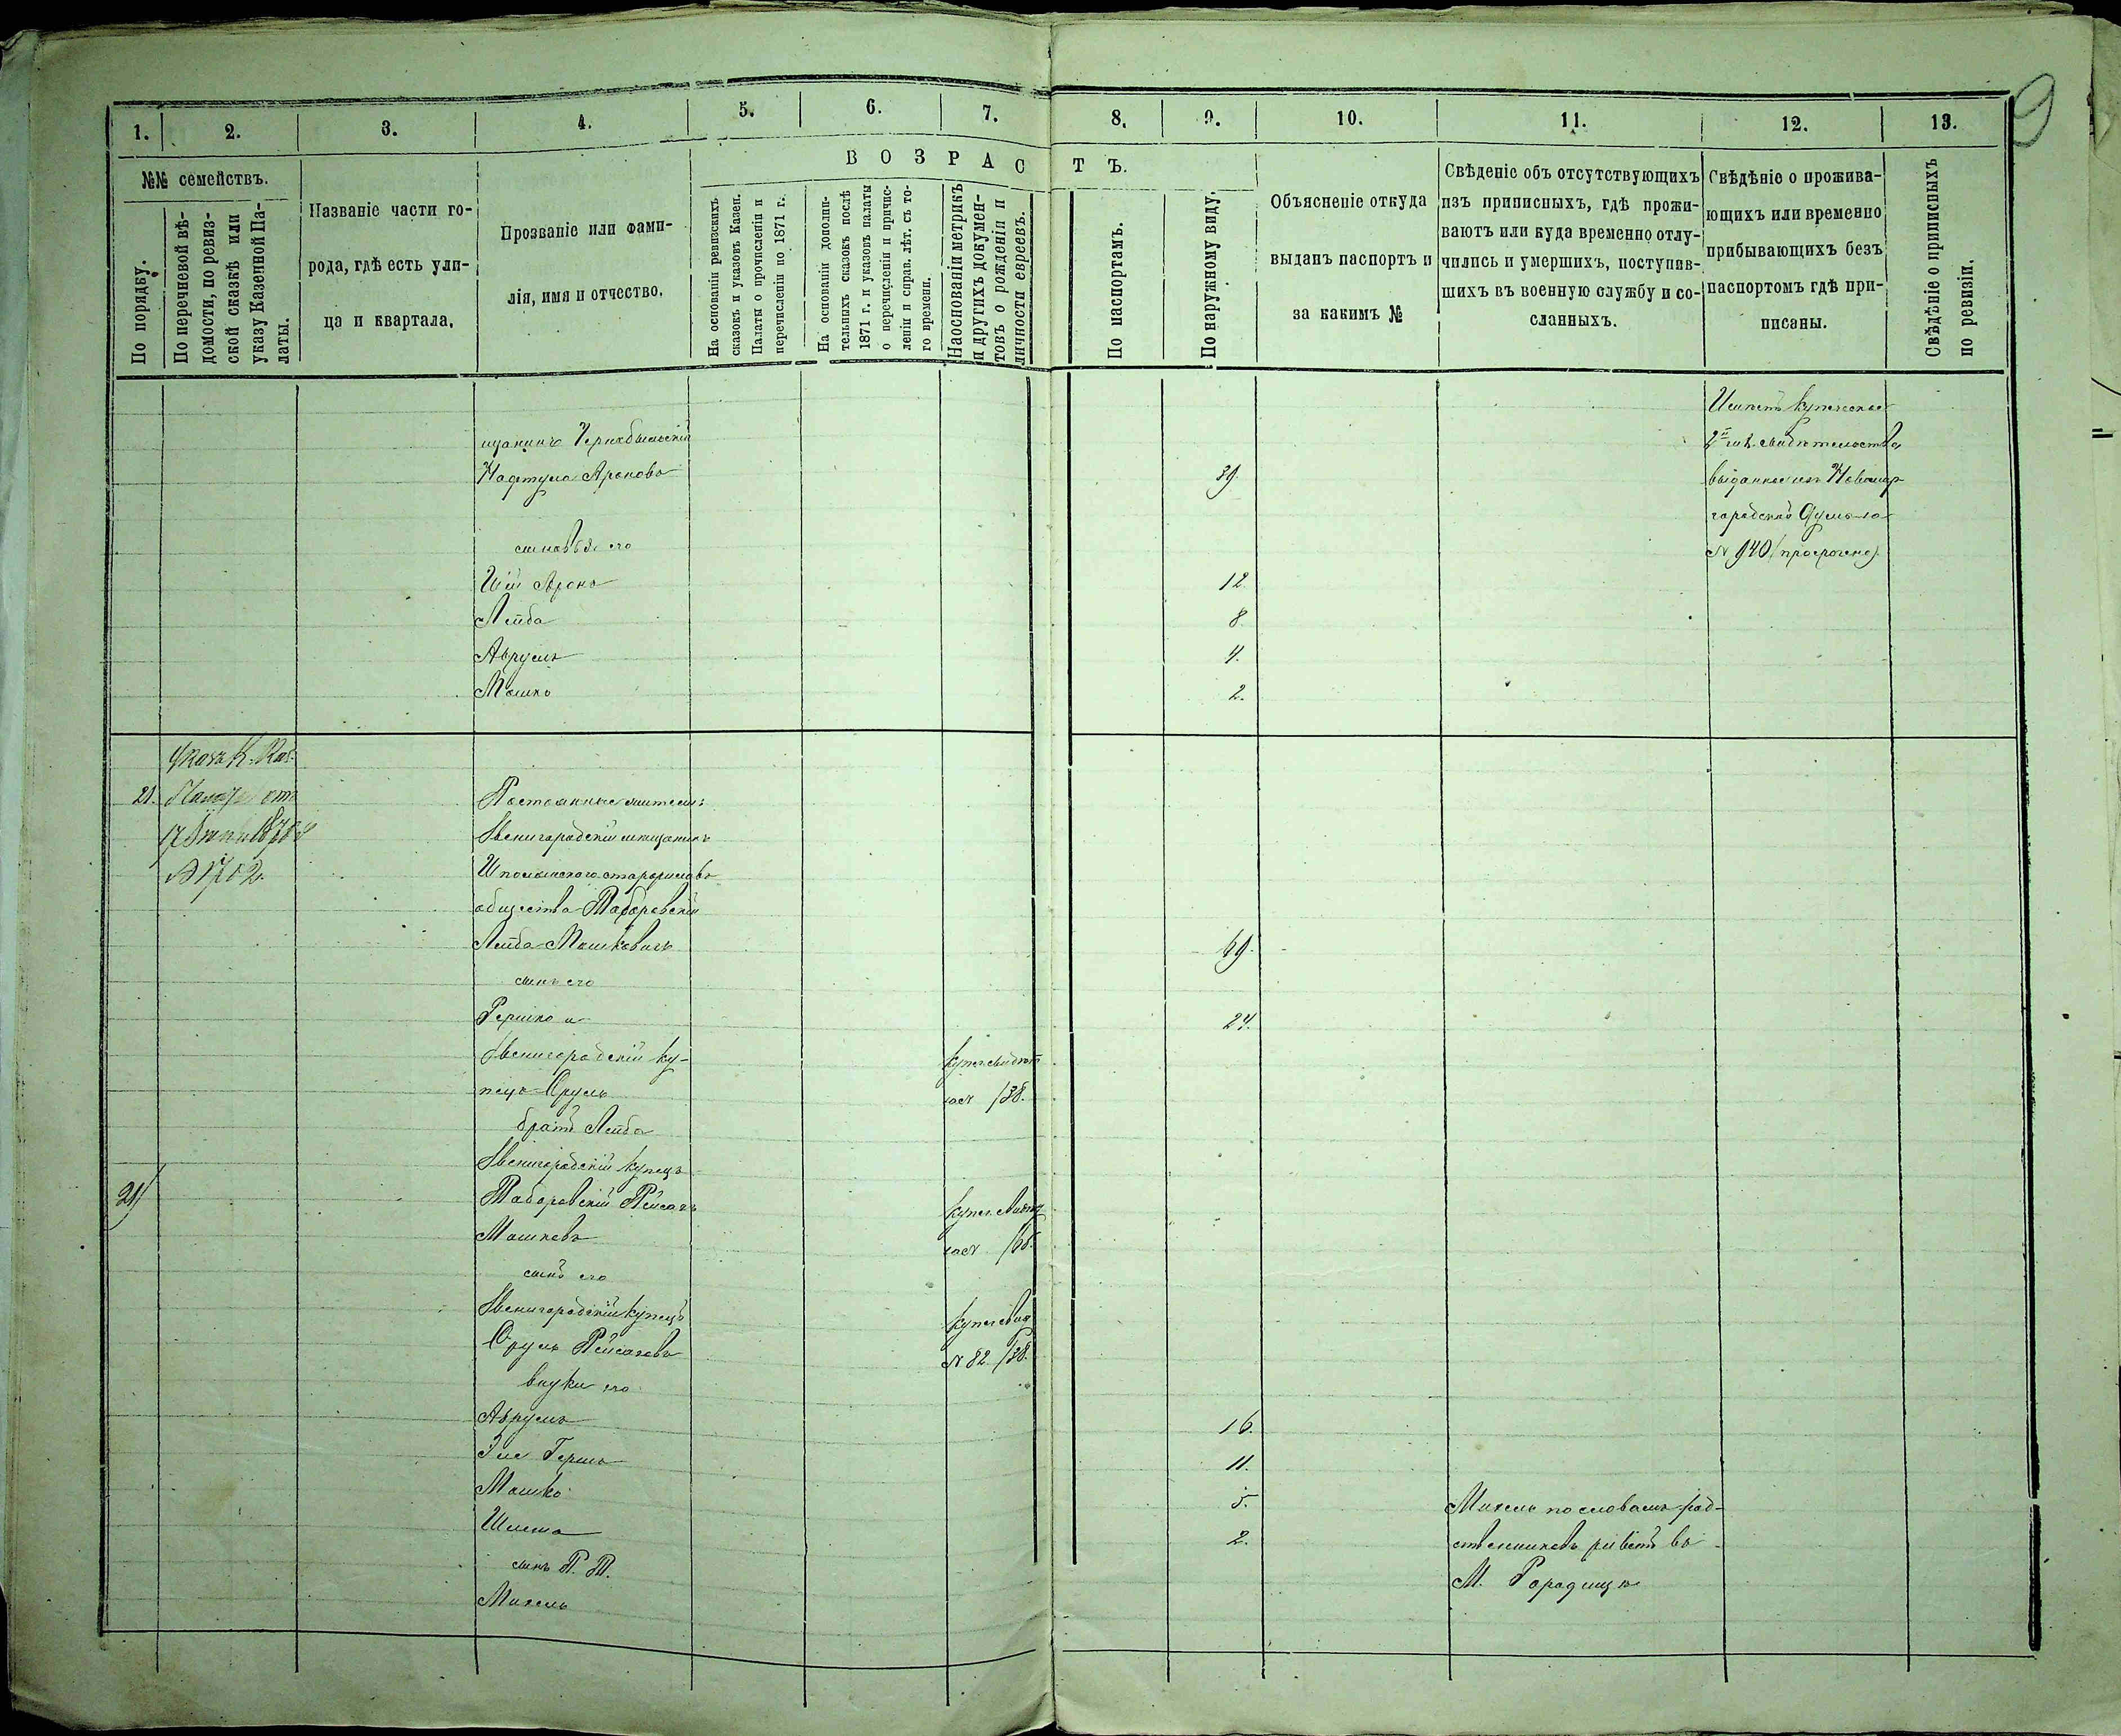 9
1. 2. 3. 4. 5. 6. 7. 8. 9. 10. 11. 12. 13.
№№ семействъ.
По порядку.
По перечневой вѣ-
домости, по ревиз-
ской сказкѣ или
указу Казенной Па-
латы.
Названіе части го-
рода, гдѣ есть ули-
ца и квартала.
Прозваніе или фами-
лія, имя и отчество.
ВОЗРАСТЪ.
На основаніи ревизскихъ
сказокъ и указовъ Казен.
Палаты о прочисленіи и
перечисленіи по 1871 г.
На основаніи дополни-
тельныхъ сказокъ послѣ
1871 г. и указовъ палаты
о перечисленіи и причис-
леніи и справ. лѣт. съ то-
го времени.
На основаніи метрикъ
и другихъ докумен-
товъ о рожденіи и
личности евреевъ.
По паспортамъ.
По наружному виду.
Объясненіе откуда
выданъ паспортъ и
за какимъ №
Свѣденіе объ отсутствующихъ
изъ приписныхъ, гдѣ прожи-
ваютъ или куда временно отлу-
чились и умершихъ, поступив-
шихъ въ военную службу и со-
сланныхъ.
Свѣдѣніе о прожива-
ющихъ или временно
прибывающихъ безъ
паспортомъ гдѣ при-
писаны.
Свѣдѣніе о приписныхъ
по ревизіи.
щанинъ Чернобыльскій
Ароновъ 39.
сыновья его
Аронъ 12.
Лейба 8.
Аврумъ 4.
Мошко 2.
купеческое
свидѣтельство
выданное изъ
городской Думы за
№ 940 (просрочено)
21.
Указъ К. Каз.
Палаты отъ
17
№ 1702.
Постоянные жители:
Звенигородскій мѣщанинъ
Шполянского
общества Таборовскій
Лейба Мошковичъ 69.
сынъ его
Гершко и 24.
Звенигородскій ку-
пецъ Срулъ
купеч. свидѣт.
за № /38.
братъ Лейба
Звенигородскій купецъ
21/ Таборовскій Пейсахъ
Мошковъ
купеч. свидѣт
за № /66.
сынъ его
Звенигородскій купецъ
Срулъ Пейсаховъ
купеч. свид
№ 82 /38.
внуки его
Аврумъ 16.
Гершъ 11.
Мошко 5.
Шлема 2.
сынъ П. Т.
Михель
Михель по словамъ род-
ственниковъ живетъ въ
М. Городище